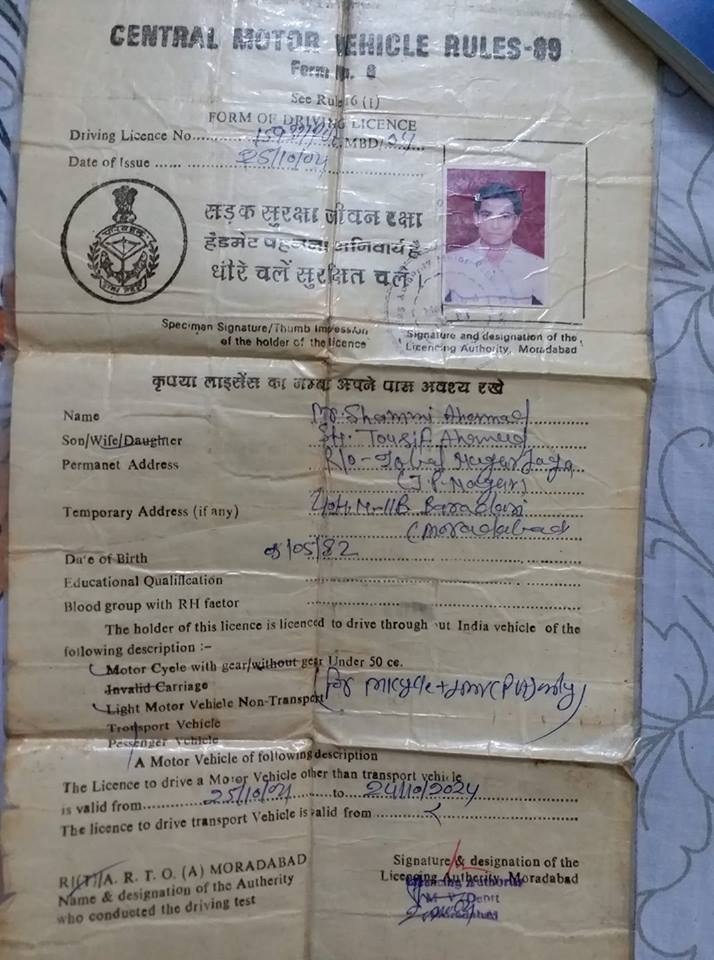 CENTRAL MOTOR VEHICLE RULES-89
Form No. 6
See Rule 16 (1)
FORM OF DRIVING LICENCE
Driving Licence No. MBD/04
Date of Issue ...... 25/10/04
सड़क सुरक्षा जीवन रक्षा
हैलमेट पहनना अनिवार्य है
धीरे चलें सुरक्षित चलें।
Specimen Signature/Thumb Impession
of the holder of the licence
Signature and designation of the
Licencing Authority, Moradabad
कृपया लाइसेंस का नम्बर अपने पास अवश्य रखें
Name Mr. Shammi Ahemad
Son/Wife/Daughter Sri. Tousif Ahemed
Permanet Address R/o- Nagar
(J.P. Nagar)
Temporary Address (if any) H.N-11B Baradari
(Moradabad
Date of Birth /05/82
Educational Qualification
Blood group with RH factor
The holder of this licence is licenced to drive through out India vehicle of the
following description :-
Motor Cycle with gear/without gear Under 50 cc.
Invalid Carriage
Light Motor Vehicle Non-Transport
(for M/cycle + LMV (Pvt) only)
Transport Vehicle
Passenger Vehicle
A Motor Vehicle of following description
The Licence to drive a Motor Vehicle other than transport vehicle
is valid from 25/10/04 to 24/10/2024
The licence to drive transport Vehicle is valid from
R(T)/A. R. T. O. (A) MORADABAD
Name & designation of the Authority
who conducted the driving test
Signature & designation of the
Licencing Authority, Moradabad
Licencing Authority
M. V. Deptt
Moradabad